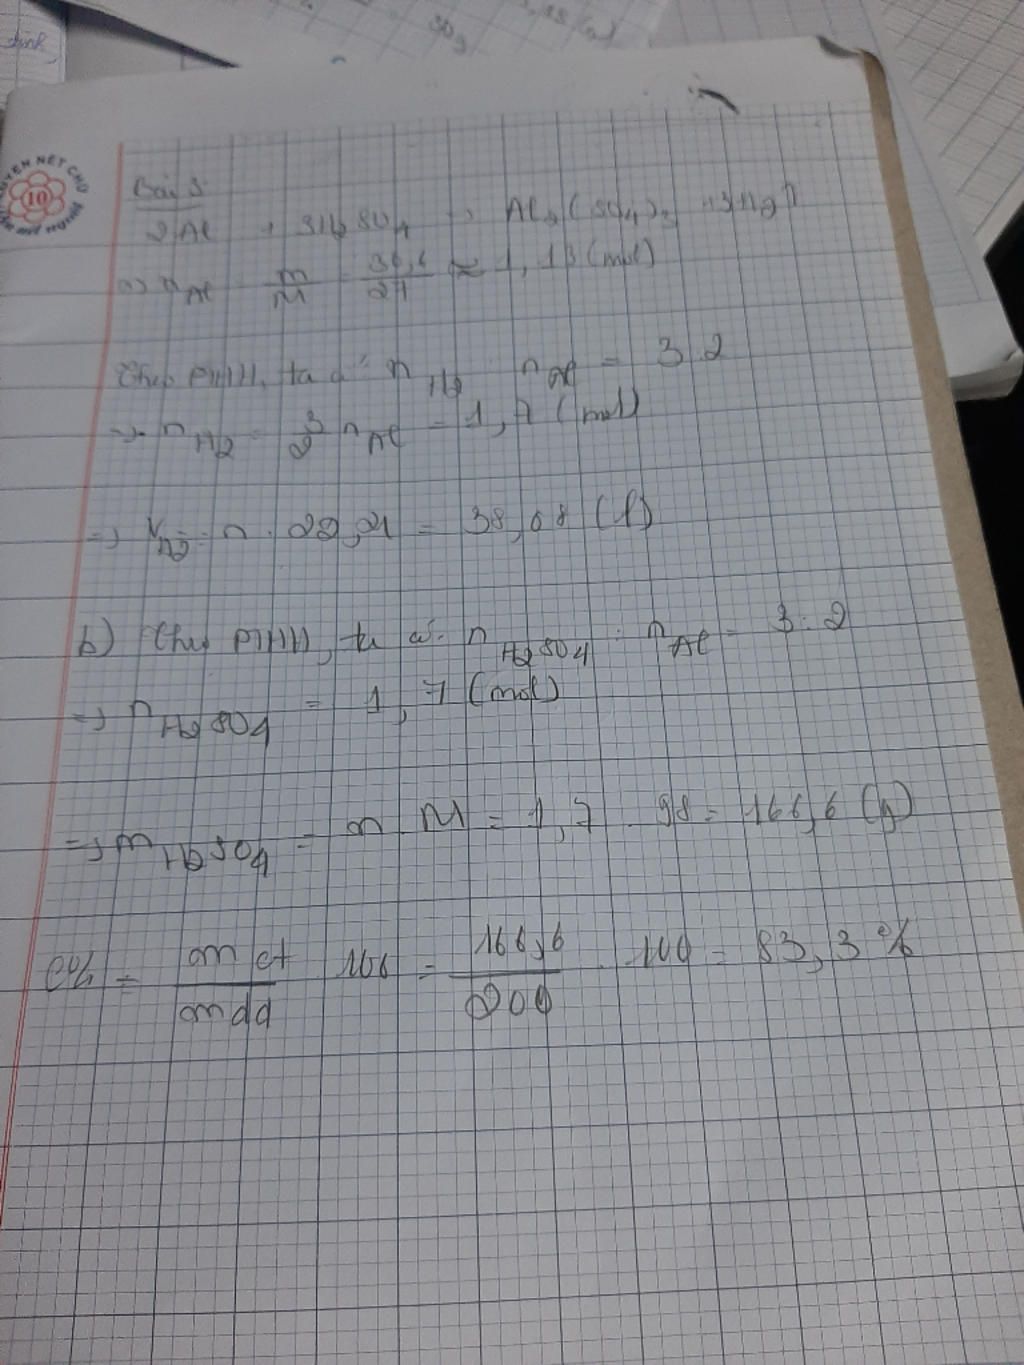 Bài 3
2Al + 3H2SO4 → Al2(SO4)3 + 3H2↑
a) nAl = m/M = 30,6/27 ≈ 1,13 (mol)
Theo PTHH, ta có: nH2 : nAl = 3:2
=> nH2 = 3/2 nAl = 1,7 (mol)
=> VH2 = n . 22,4 = 38,08 (l)
b) Theo PTHH, ta có: nH2SO4 : nAl = 3:2
=> nH2SO4 = 1,7 (mol)
=> mH2SO4 = n . M = 1,7 . 98 = 166,6 (g)
C% = mct/mdd . 100 = 166,6/200 . 100 = 83,3%
10